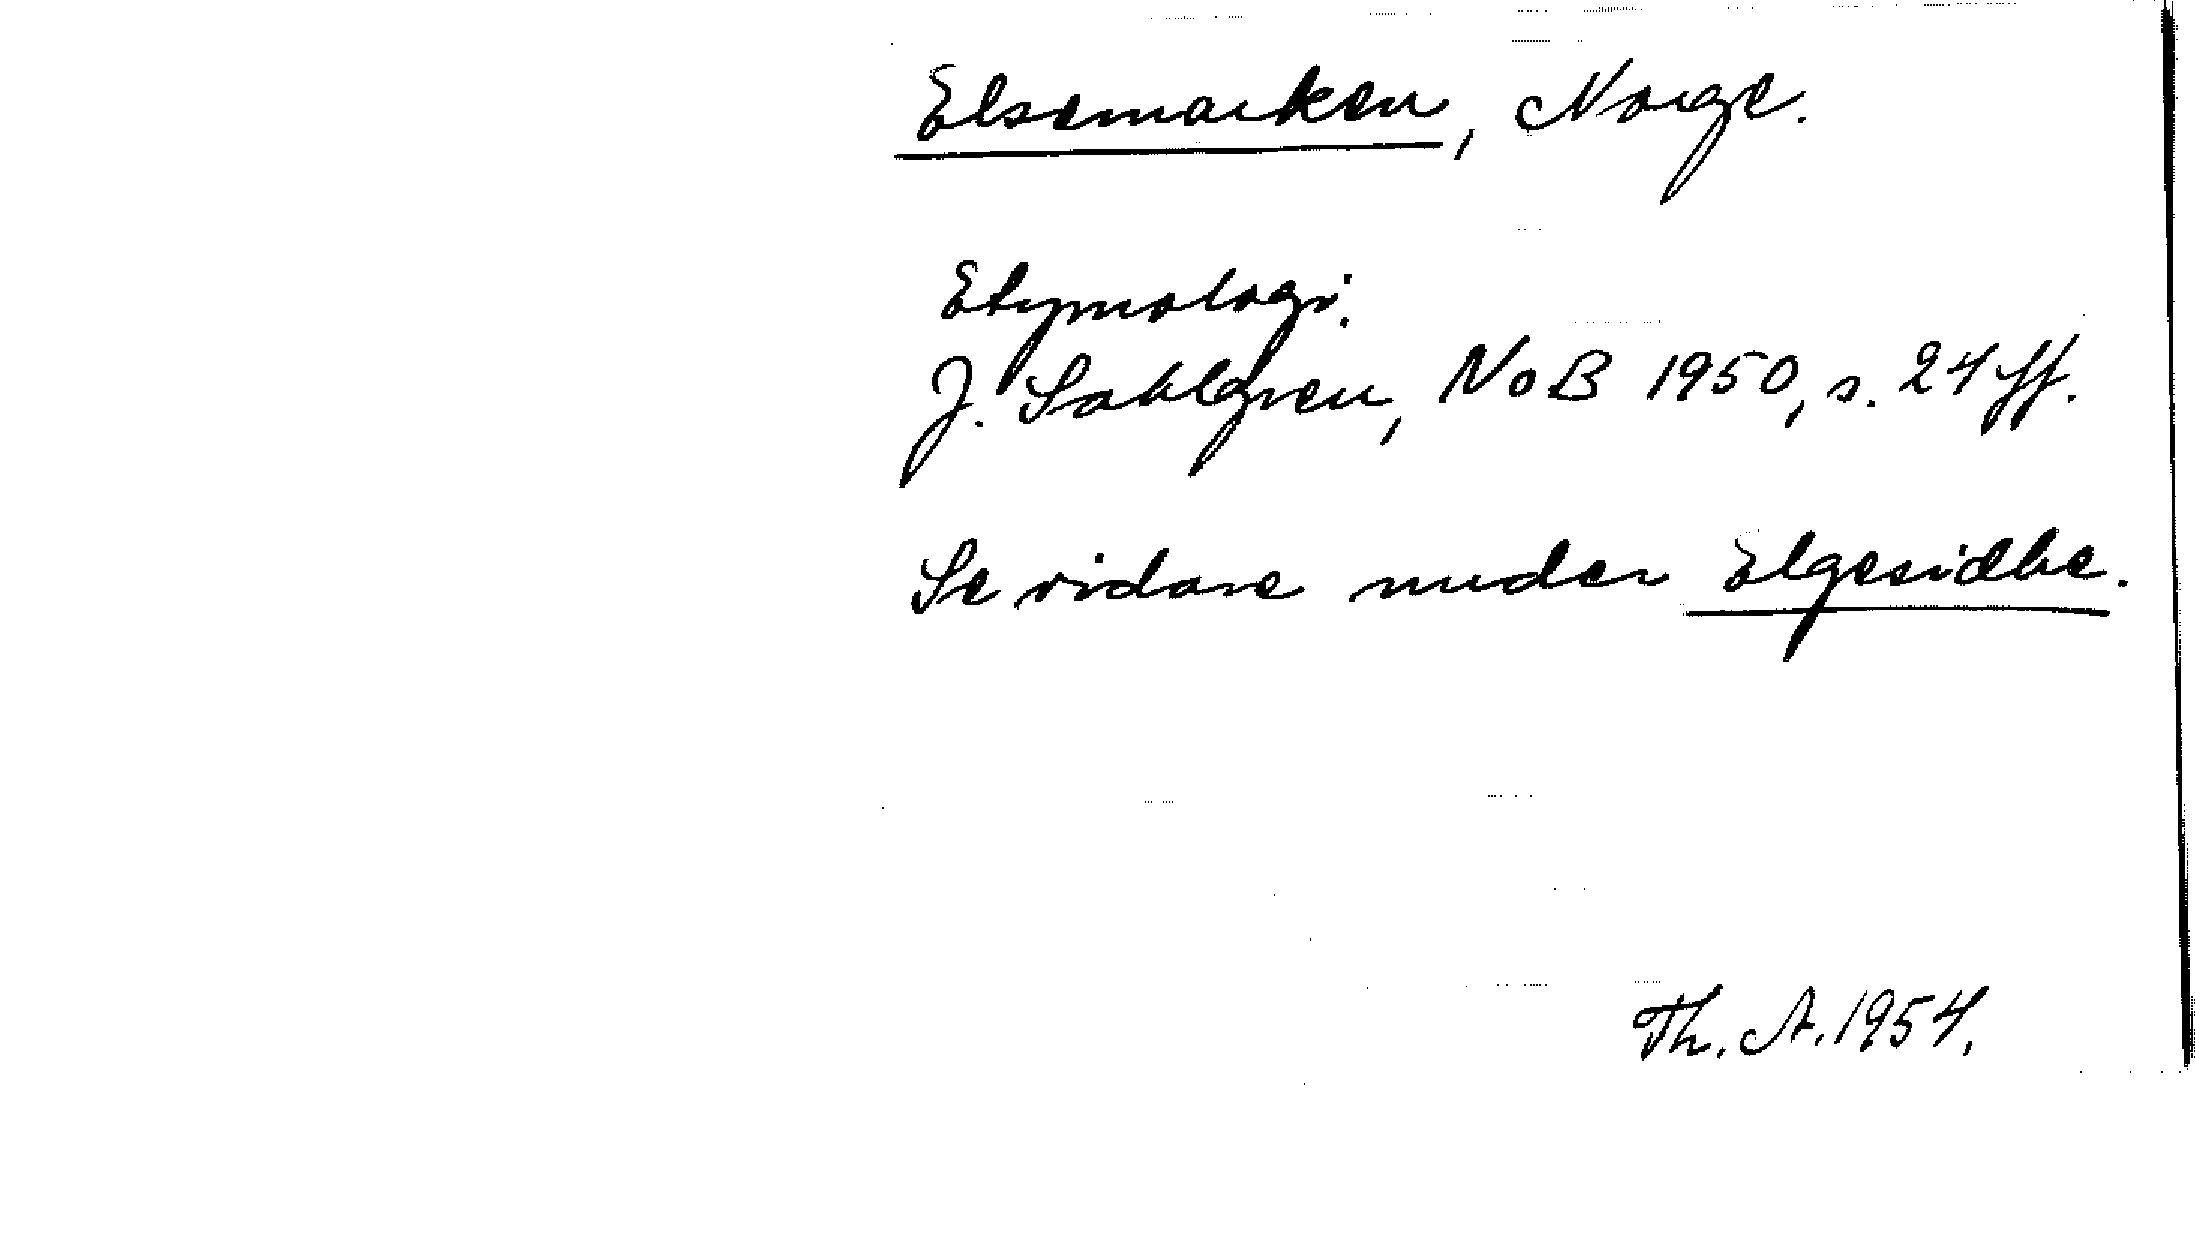 Elsemarken, Norge.
Etymologi.
J. Sahlgren, NoB 1950, s. 24 ff.
Se vidare under Elgesidhe.
Th. A. 1954.